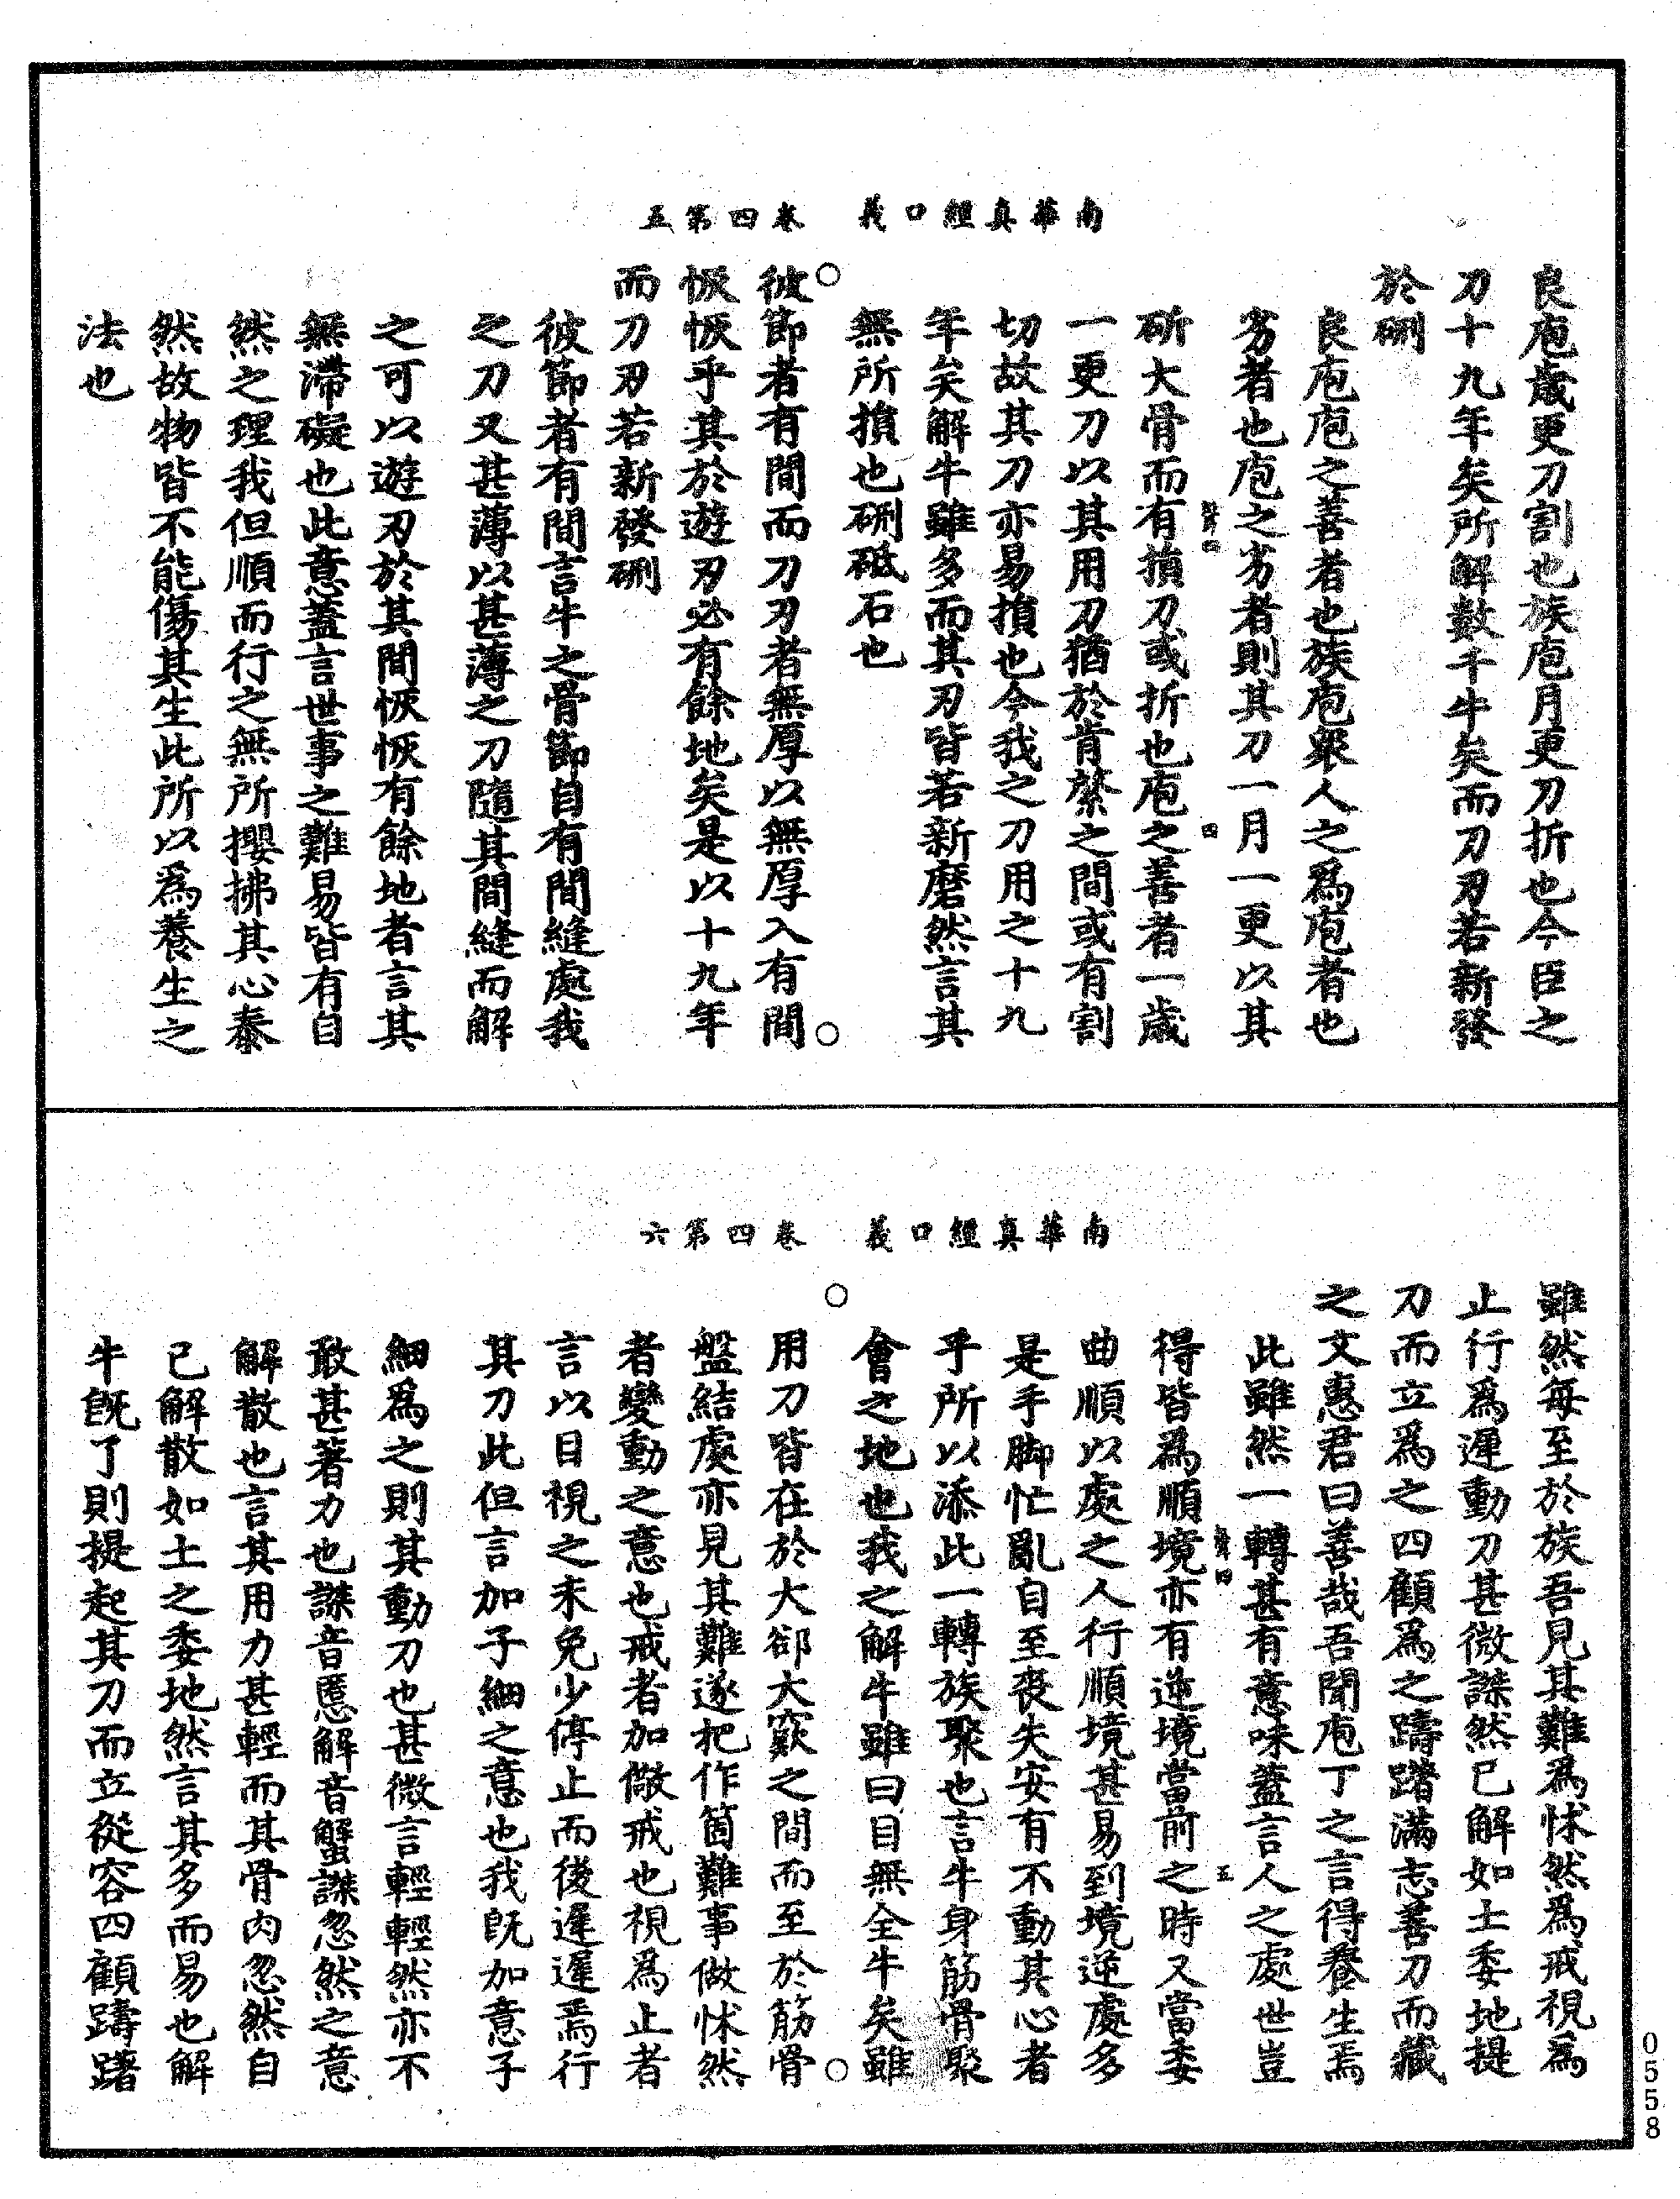 南華真經口義　卷四第五
良庖歲更刀割也族庖月更刀折也今臣之
刀十九年矣所解數千牛矣而刀刃若新發
於硎
良庖庖之善者也族庖衆人之爲庖者也
劣者也庖之劣者則其刀一月一更以其
斫大骨而有損刀或折也庖之善者一歲
一更刀以其用刀猶於肯綮之間或有割
切故其刀亦易損也今我之刀用之十九
年矣解牛雖多而其刃皆若新磨然言其
無所損也硎砥石也
彼節者有間而刀刃者無厚以無厚入有間
恢恢乎其於遊刃必有餘地矣是以十九年
而刀刃若新發硎
彼節者有間言牛之骨節自有間縫處我
之刀又甚薄以甚薄之刀隨其間縫而解
之可以遊刃於其間恢恢有餘地者言其
無滯礙也此意蓋言世事之難易皆有自
然之理我但順而行之無所攖拂其心泰
然故物皆不能傷其生此所以爲養生之
法也
南華真經口義　卷四第六
雖然每至於族吾見其難爲怵然爲戒視爲
止行爲遲動刀甚微謋然已解如土委地提
刀而立爲之四顧爲之躊躇滿志善刀而藏
之文惠君曰善哉吾聞庖丁之言得養生焉
此雖然一轉甚有意味蓋言人之處世豈
得皆爲順境亦有逆境當前之時又當委
曲順以處之人行順境甚易到境逆處多
是手脚忙亂自至喪失安有不動其心者
乎所以添此一轉族聚也言牛身筋骨聚
會之地也我之解牛雖曰目無全牛矣雖
用刀皆在於大郤大窾之間而至於筋骨
盤結處亦見其難遂把作箇難事做怵然
者變動之意也戒者加儆戒也視爲止者
言以目視之未免少停止而後遲遲焉行
其刀此但言加子細之意也我既加意子
細爲之則其動刀也甚微言輕輕然亦不
敢甚著力也謋音慝解音蟹謋忽然之意
解散也言其用力甚輕而其骨肉忽然自
已解散如土之委地然言其多而易也解
牛既了則提起其刀而立從容四顧躊躇
0558